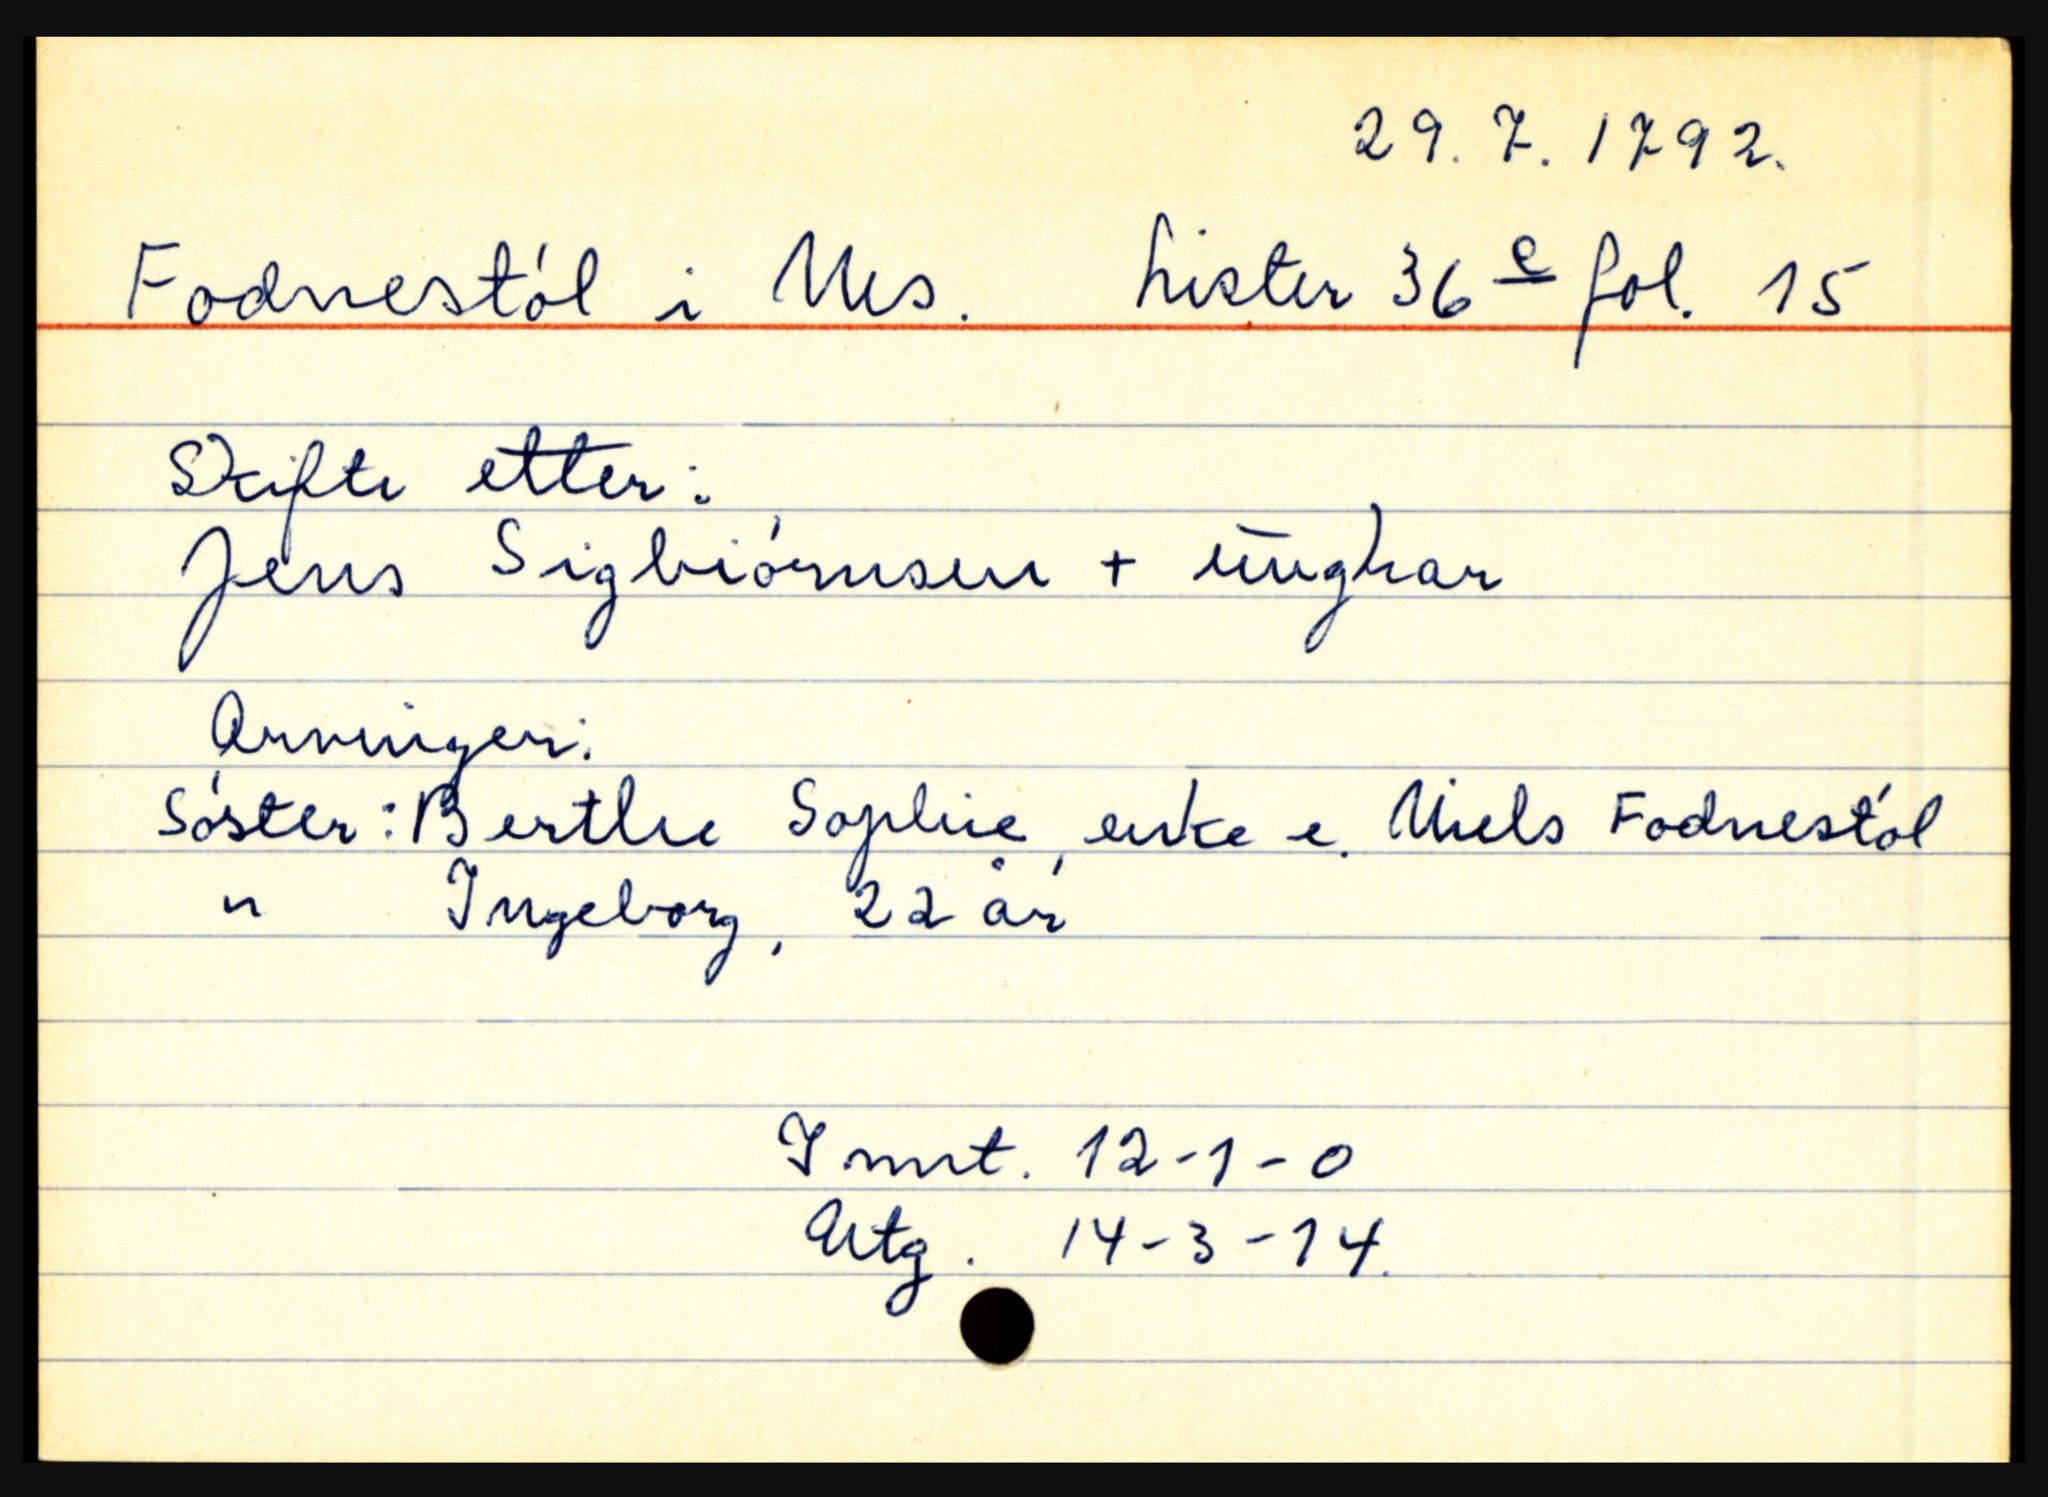 29. 7. 1792.
Fodnestól i Nes. Lister 36 c fol. 15
Skifte etter:
Jens Sigbiórnsen + ungkar
Arvinger:
Sóster: Berthe Sophie, enke e. Niels Fodnestól
" Ingeborg, 22 år
Innt. 12-1-0
Utg. 14-3-14.